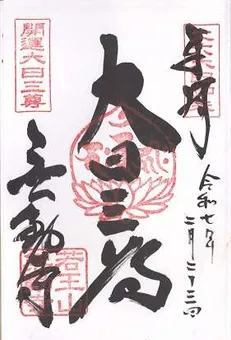 奉拝
令和七年
二月二十三日
開運大日三尊
大日三尊
若王山
無動寺